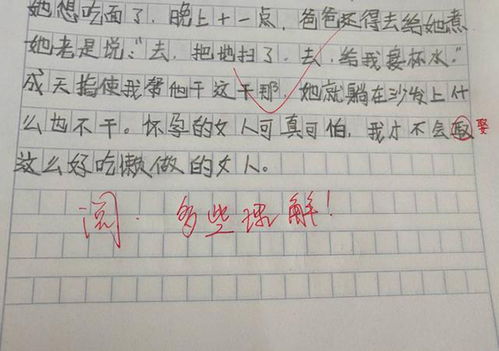 她想吃面了，晚上十一点，爸爸还得去给她煮
她老是说："去，把地扫了，去，给我接杯水。"
成天指使我帮他干这干那，她就躺在沙发上什
么也不干。怀孕的女人可真可怕，我才不会
娶
这么好吃懒做的女人。
阅．多些理解！